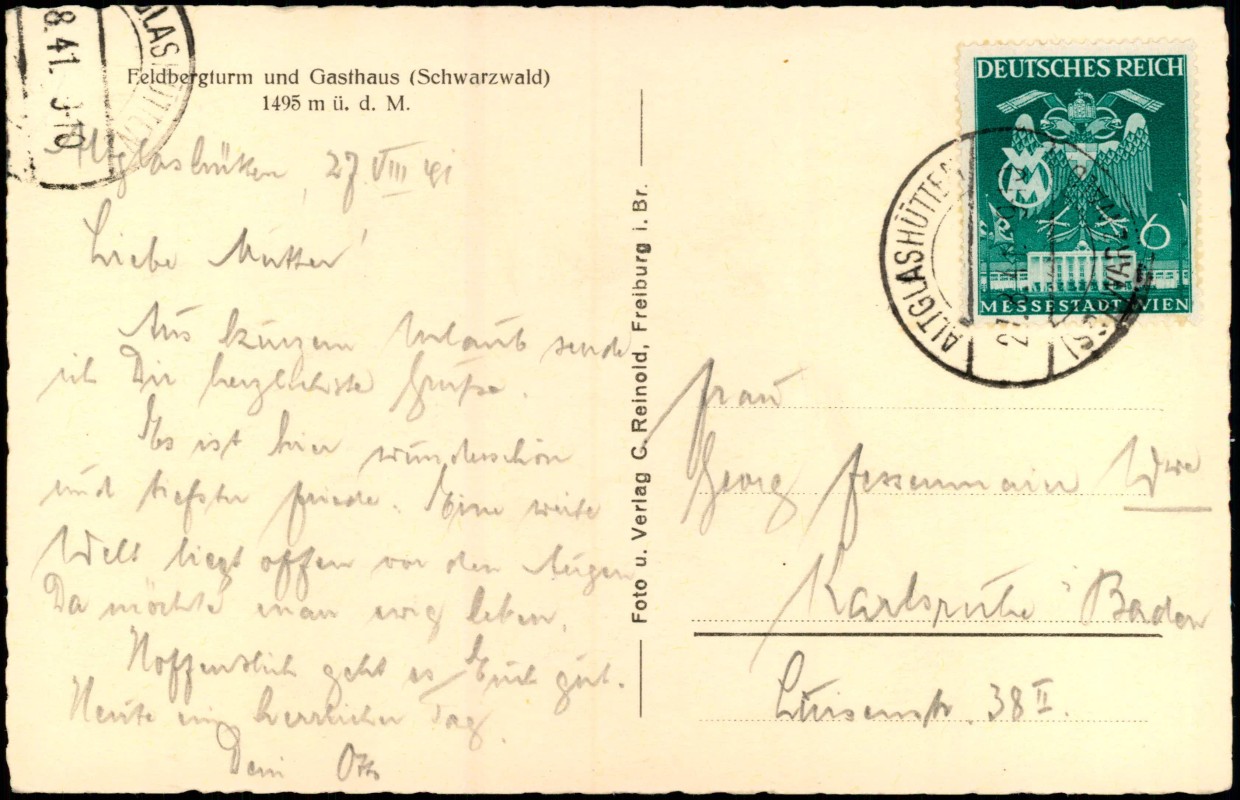 Feldbergturm und Gasthaus (Schwarzwald)
1495 m ü. d. M.
Altglashütten, 27. VIII 41
Liebe Mutter!
Aus kurzem Urlaub sende
ich Dir herzlichste Grüße.
Es ist hier wunderschön
und tiefster Friede. Eine weite
Welt liegt offen vor den Augen
Da möchte man ewig leben.
Hoffentlich geht es Euch gut.
Heute ein herrlicher Tag.
Dein Otto
Foto u. Verlag C. Reinold, Freiburg i. Br.
DEUTSCHES REICH
WM
6
MESSESTADT WIEN
ALTGLASHÜTTEN (SCHWARZW
8.41.
GLASHÜTTEN
Frau
Georg Fessenmaier Wwe
Karlsruhe Baden
Luisenstr. 38 II.